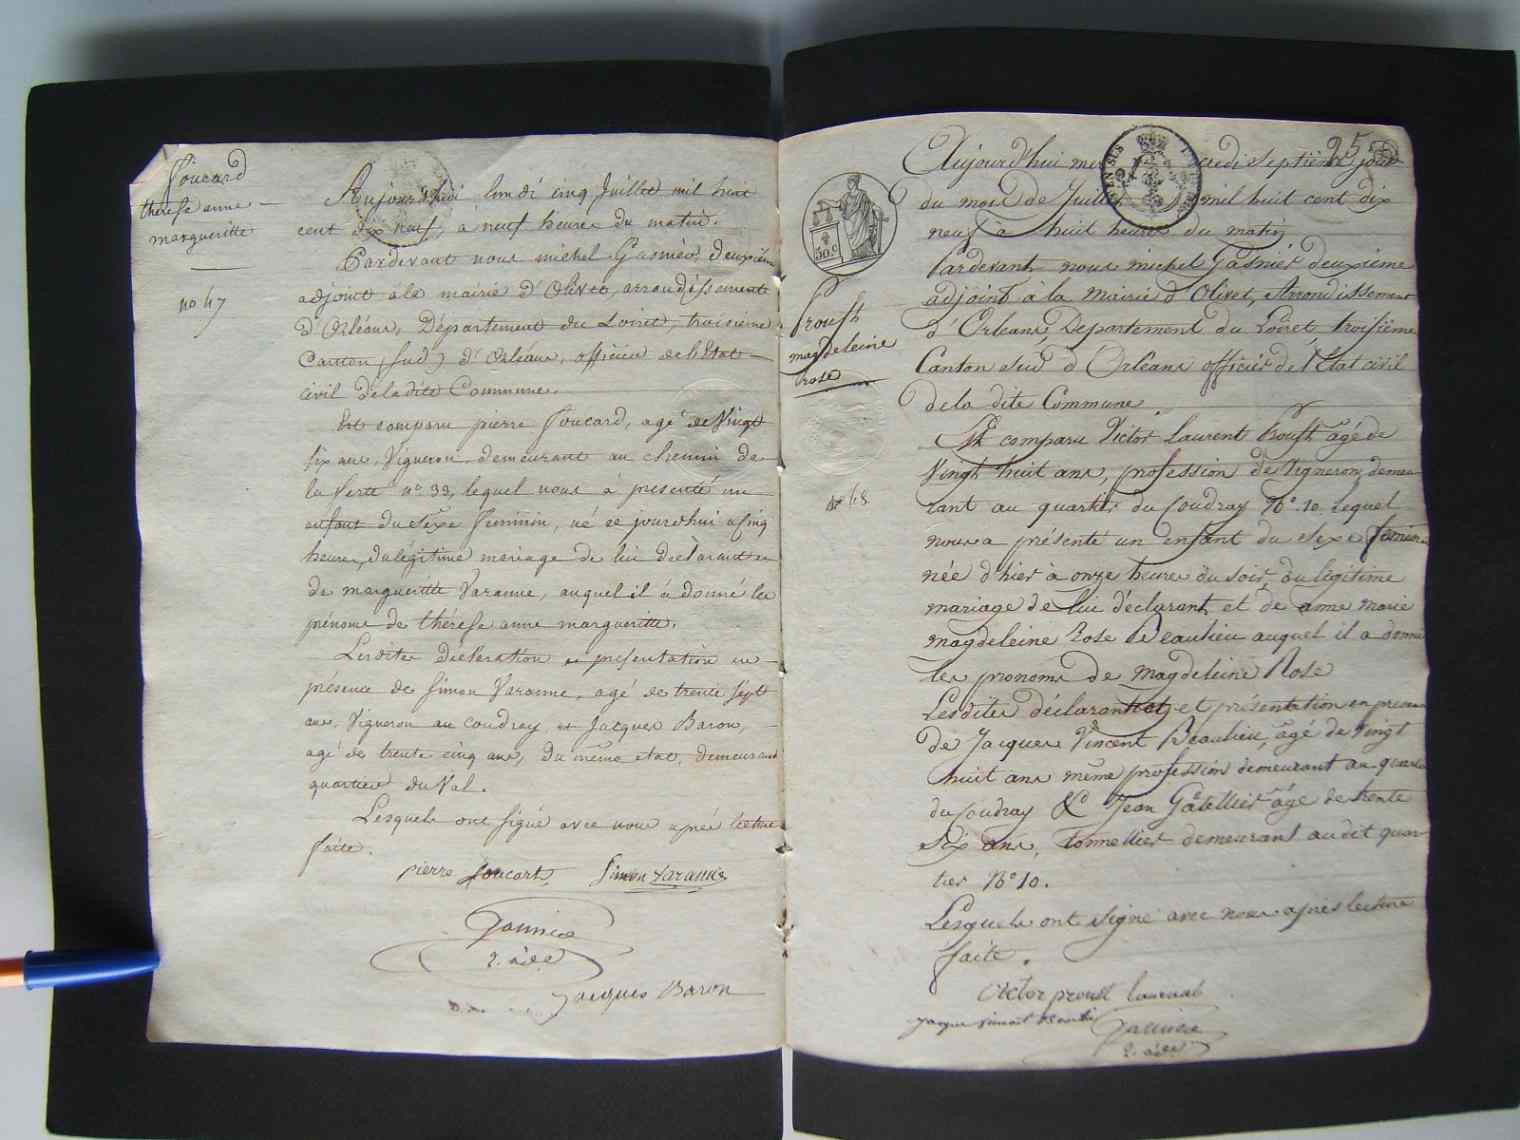 foucard
thérèse anne
margueritte
no 47
Aujourd'hui lundi cinq Juillet mil huit
cent dix neuf, à neuf heures du matin.
Pardevant nous michel Gasnier deuxième
adjoint à la mairie d'Olivet, arrondissement
d'Orléans, Département du Loiret, troisième
Canton (sud) d'Orléans, officier de l'Etat
civil de la dite Commune.
Est comparu pierre foucard, agé de Vingt
six ans, Vigneron, demeurant au chemin de
la Verte n° 33, lequel nous à présenté un
enfant du Sexe féminin, né ce jourdhui a cinq
heures, du légitime mariage de lui déclarant et
de margueritte Varanne, auquel il à donné les
prénoms de thérèse anne margueritte.
Lesdites déclaration et présentation en
présence de Simon Varanne, agé de trente sept
ans, Vigneron au coudray, et Jacques Baron,
agé de trente cinq ans, du même etat, demeurant
quartier du Val.
Lesquels ont signé avec nous après lecture
faite.
pierre foucart Simon Varanne
Gasnier
2. adj
Jacques Baron
25
Aujourd'hui mercredi septième jour
du mois de Juillet mil huit cent dix
neuf à huit heures du matin
Pardevant nous michel Gasnier deuxième
adjoint à la mairie d'Olivet, Arrondissement
d'Orleans, Département du Loiret, troisième
Canton sud d'Orleans officier de l'Etat civil
de la dite Commune.
50 c
Proust
magdeleine
rose
n° 48
Est comparu Victor Laurent Proust âgé de
Vingt huit ans, profession de Vigneron, demeu
rant au quartier du Coudray N° 10. Lequel
nous a présenté un enfant du Sexe féminin
née d'hier à onze heures du soir, du légitime
mariage de lui déclarant et de anne marie
magdeleine Rose Beaulieu auquel il a donné
les pronoms de magdeleine Rose
Lesdites déclaration et présentation en présence
de Jacques Vincent Beaulieu, âgé de Vingt
huit ans même profession demeurant au quartier
du Coudray & Jean Gatellier âgé de trente
Six ans, tonnellier demeurant audit quar
tier N° 10.
Lesquels ont signé avec nous après lecture
faite.
victor proust
Gasnier
2. adj